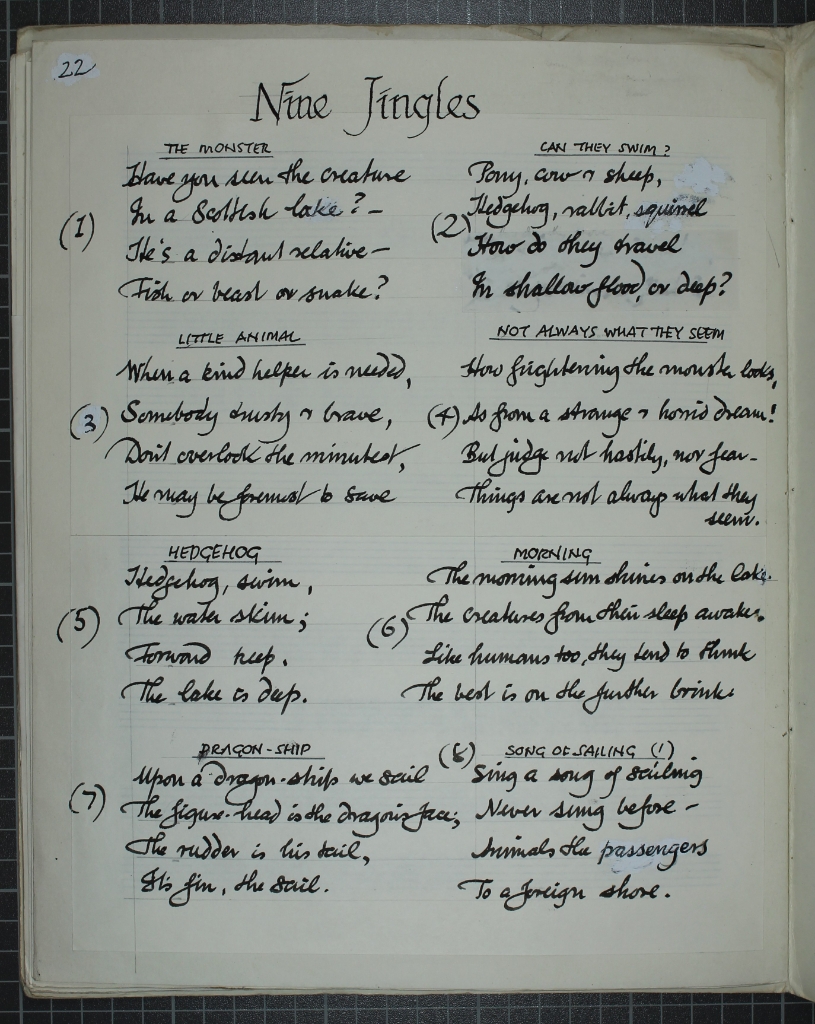 22
Nine Jingles
THE MONSTER
(1)
Have you seen the creature
In a Scottish lake? –
He's a distant relative –
Fish or beast or snake?
CAN THEY SWIM?
(2)
Pony, cow & sheep,
Hedgehog, rabbit, squirrel
How do they travel
In shallow flood, or deep?
LITTLE ANIMAL
(3)
When a kind helper is needed,
Somebody trusty & brave,
Don't overlook the minutest,
He may be foremost to save
NOT ALWAYS WHAT THEY SEEM
(4)
How frightening the monster looks,
As from a strange & horrid dream!
But judge not hastily, nor fear –
Things are not always what they
seem.
HEDGEHOG
(5)
Hedgehog, swim,
The water skim;
Forward keep.
The lake is deep.
MORNING
(6)
The morning sun shines on the lake.
The creatures from their sleep awake.
Like humans too, they tend to think
The best is on the further brink.
DRAGON-SHIP
(7)
Upon a dragon-ship we sail
The figure-head is the dragon's face;
The rudder is his tail,
Its fin, the sail.
(8)
SONG OF SAILING (1)
Sing a song of sailing
Never sung before –
Animals the passengers
To a foreign shore.